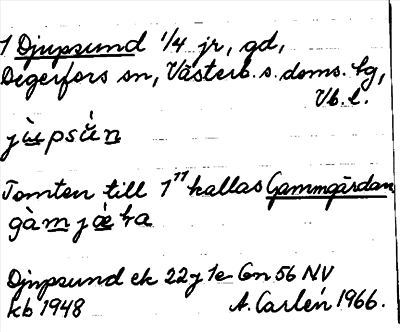 1 Djupsund 1/4 jr, gd,
Degerfors sn, Västerb. s. doms. hg,
Vb. l.
jùpsún
Tomten till 1¹¹ kallas Gammgårdan
gàmjǽra
Djupsund ek 22 j 1e Gn 56 NV
kb 1948 A. Carlén 1966.